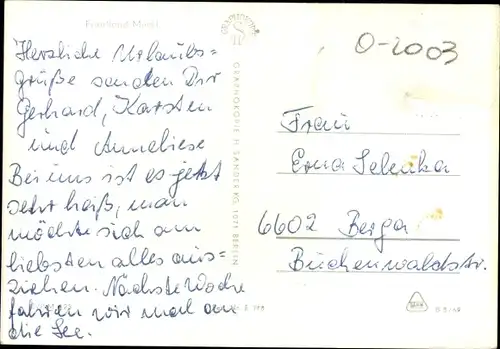 Herzliche Urlaubs-
grüße senden Dir
Gerhard, Karsten
und Anneliese
Bei uns ist es jetzt
sehr heiß, man
möchte sich am
liebsten alles aus-
ziehen. Nächste Woche
fahren wir mal an
die See.
O-2003
Frau
Erna Selenka
6602 Berga
Buchenwaldstr.
GRAPHOKOPIE H. SANDER KG, 1071 BERLIN